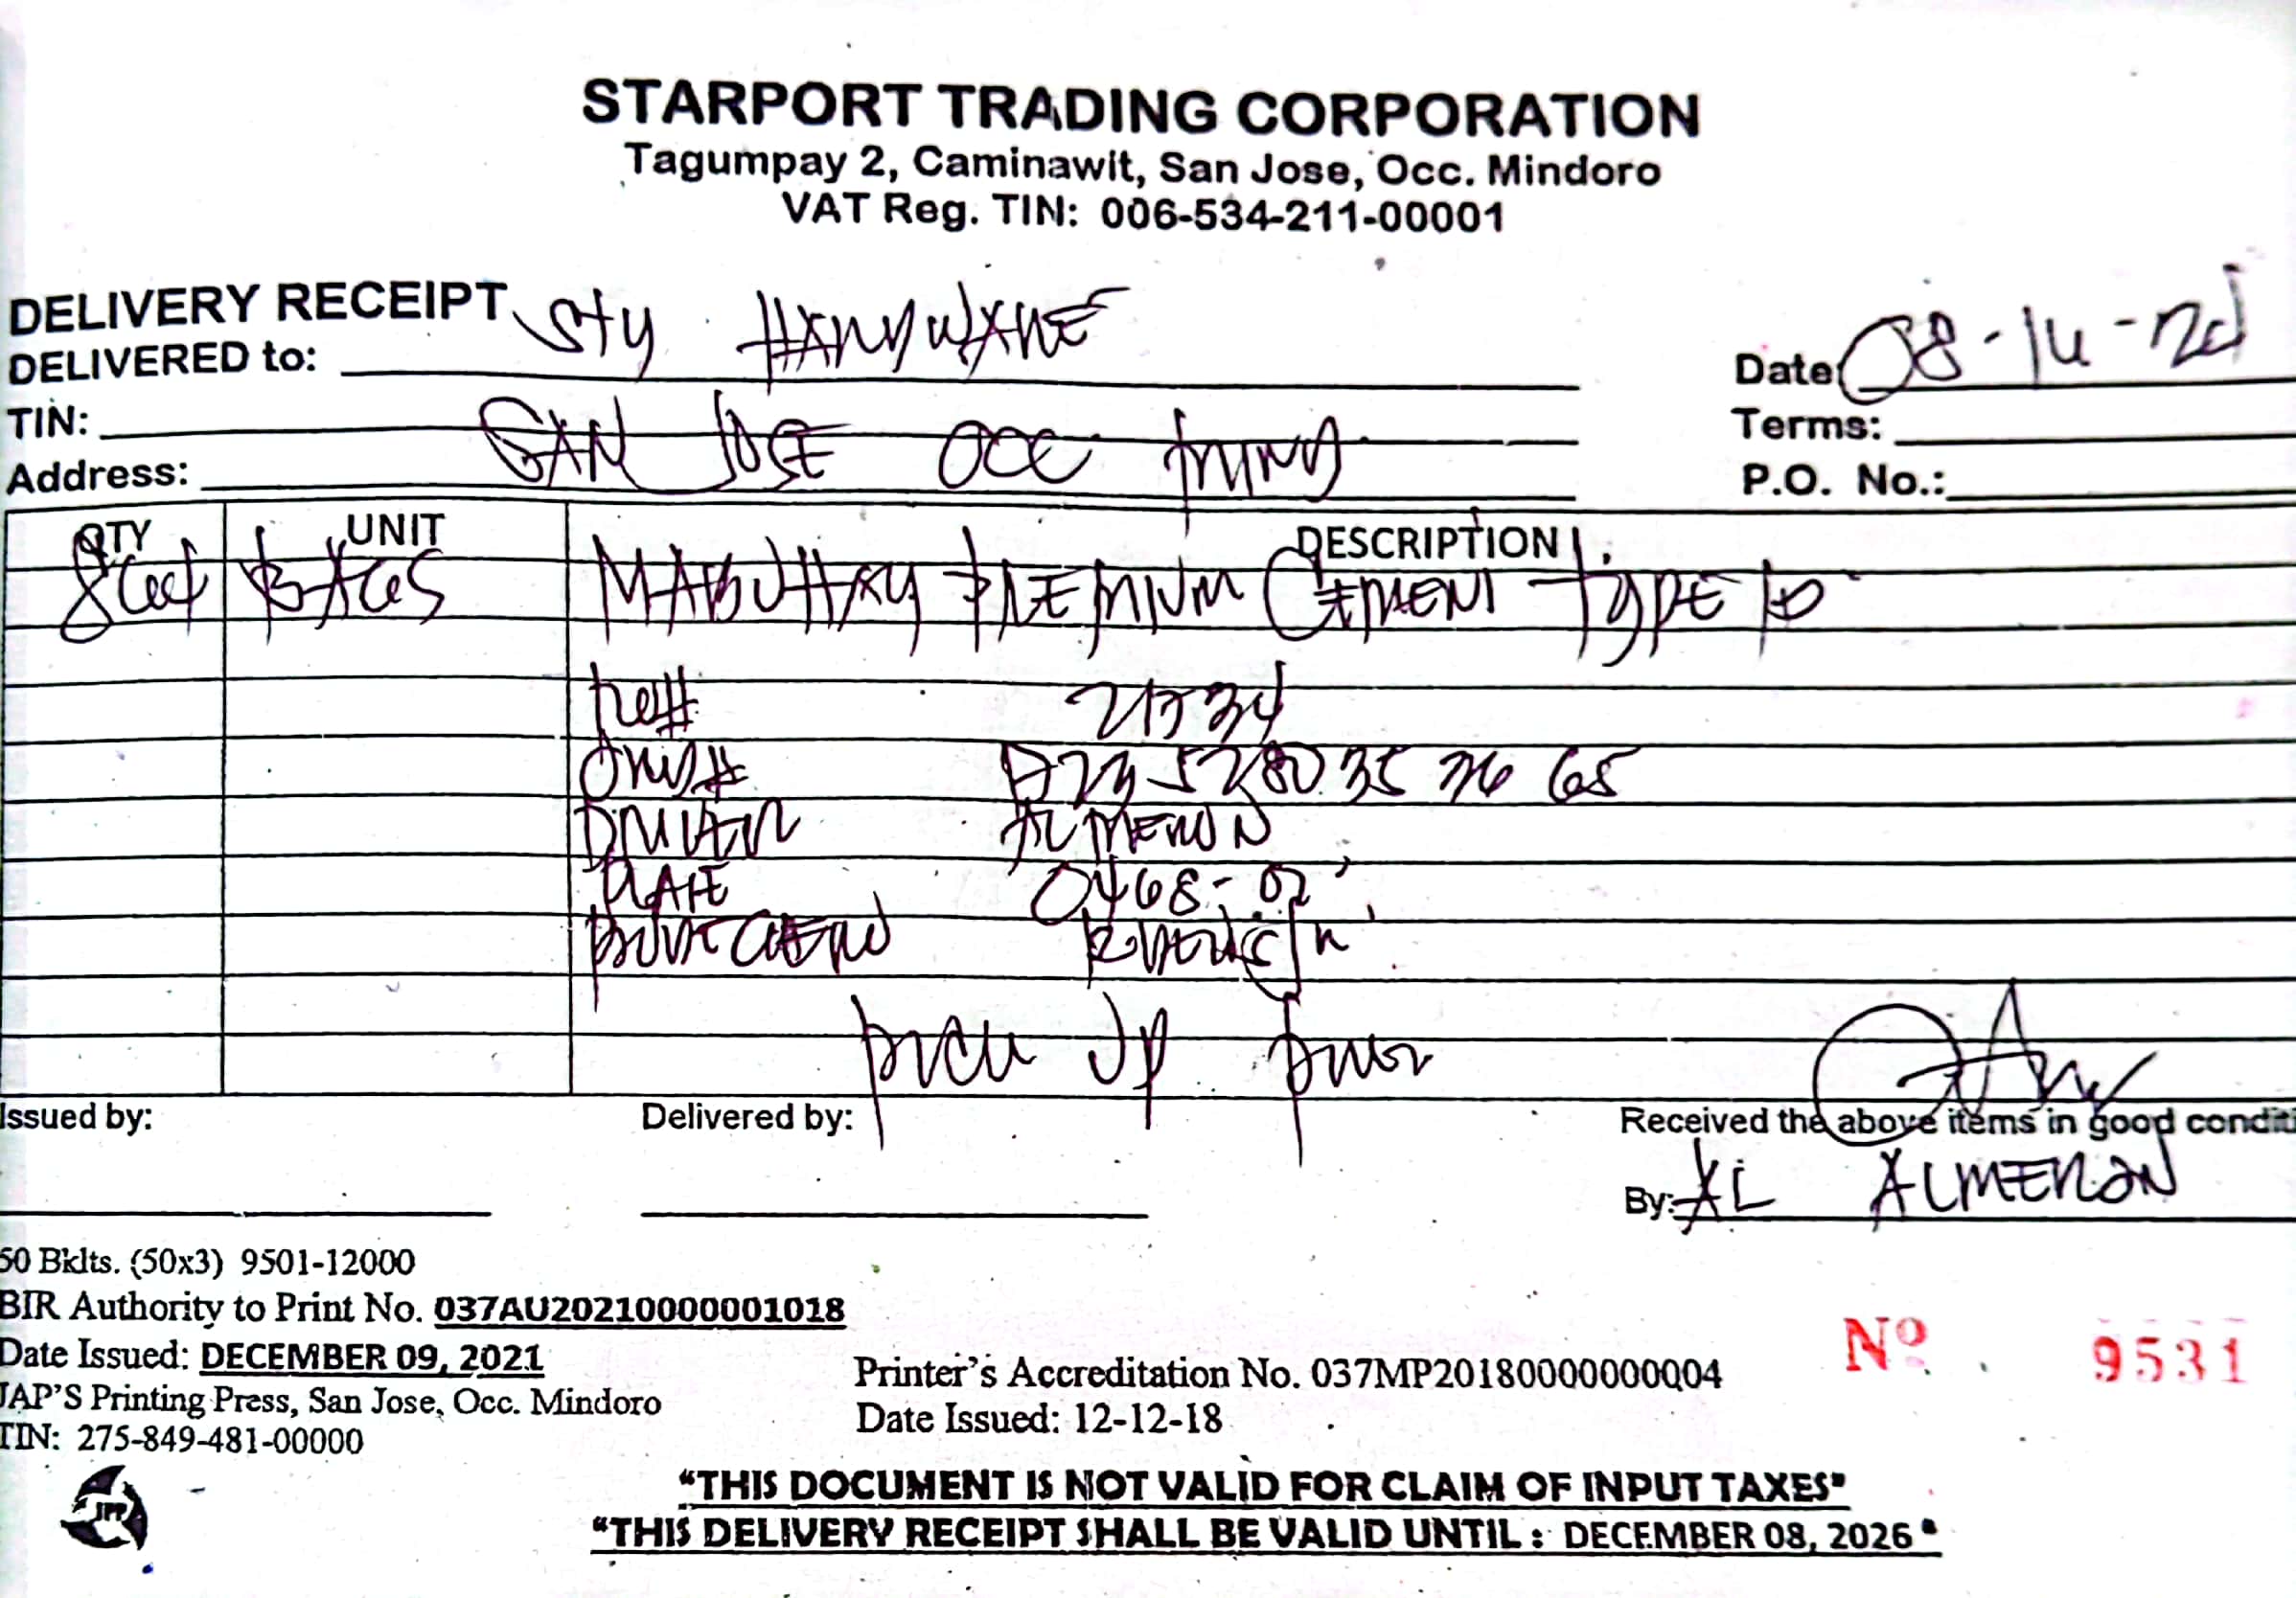 STARPORT TRADING CORPORATION
Tagumpay 2, Caminawit, San Jose, Occ. Mindoro
VAT Reg. TIN: 006-534-211-00001
DELIVERY RECEIPT
DELIVERED to: STY HARDWARE
Date 08-14-
TIN:
Terms:
Address: SAN JOSE OCC MINDO
P.O. No.:
QTY UNIT DESCRIPTION
BAGS MABUHAY PREMIUM CEMENT TYPE 1P
21334
DRIVER ALMERON
PLATE 0468-02
PICK UP
Issued by:
Delivered by:
Received the above items in good conditi
By: AL ALMERON
50 Bklts. (50x3) 9501-12000
BIR Authority to Print No. 037AU20210000001018
Date Issued: DECEMBER 09, 2021
JAP'S Printing Press, San Jose, Occ. Mindoro
TIN: 275-849-481-00000
Printer's Accreditation No. 037MP20180000000004
Date Issued: 12-12-18
Nº 9531
JPP
"THIS DOCUMENT IS NOT VALID FOR CLAIM OF INPUT TAXES"
"THIS DELIVERY RECEIPT SHALL BE VALID UNTIL : DECEMBER 08, 2026"